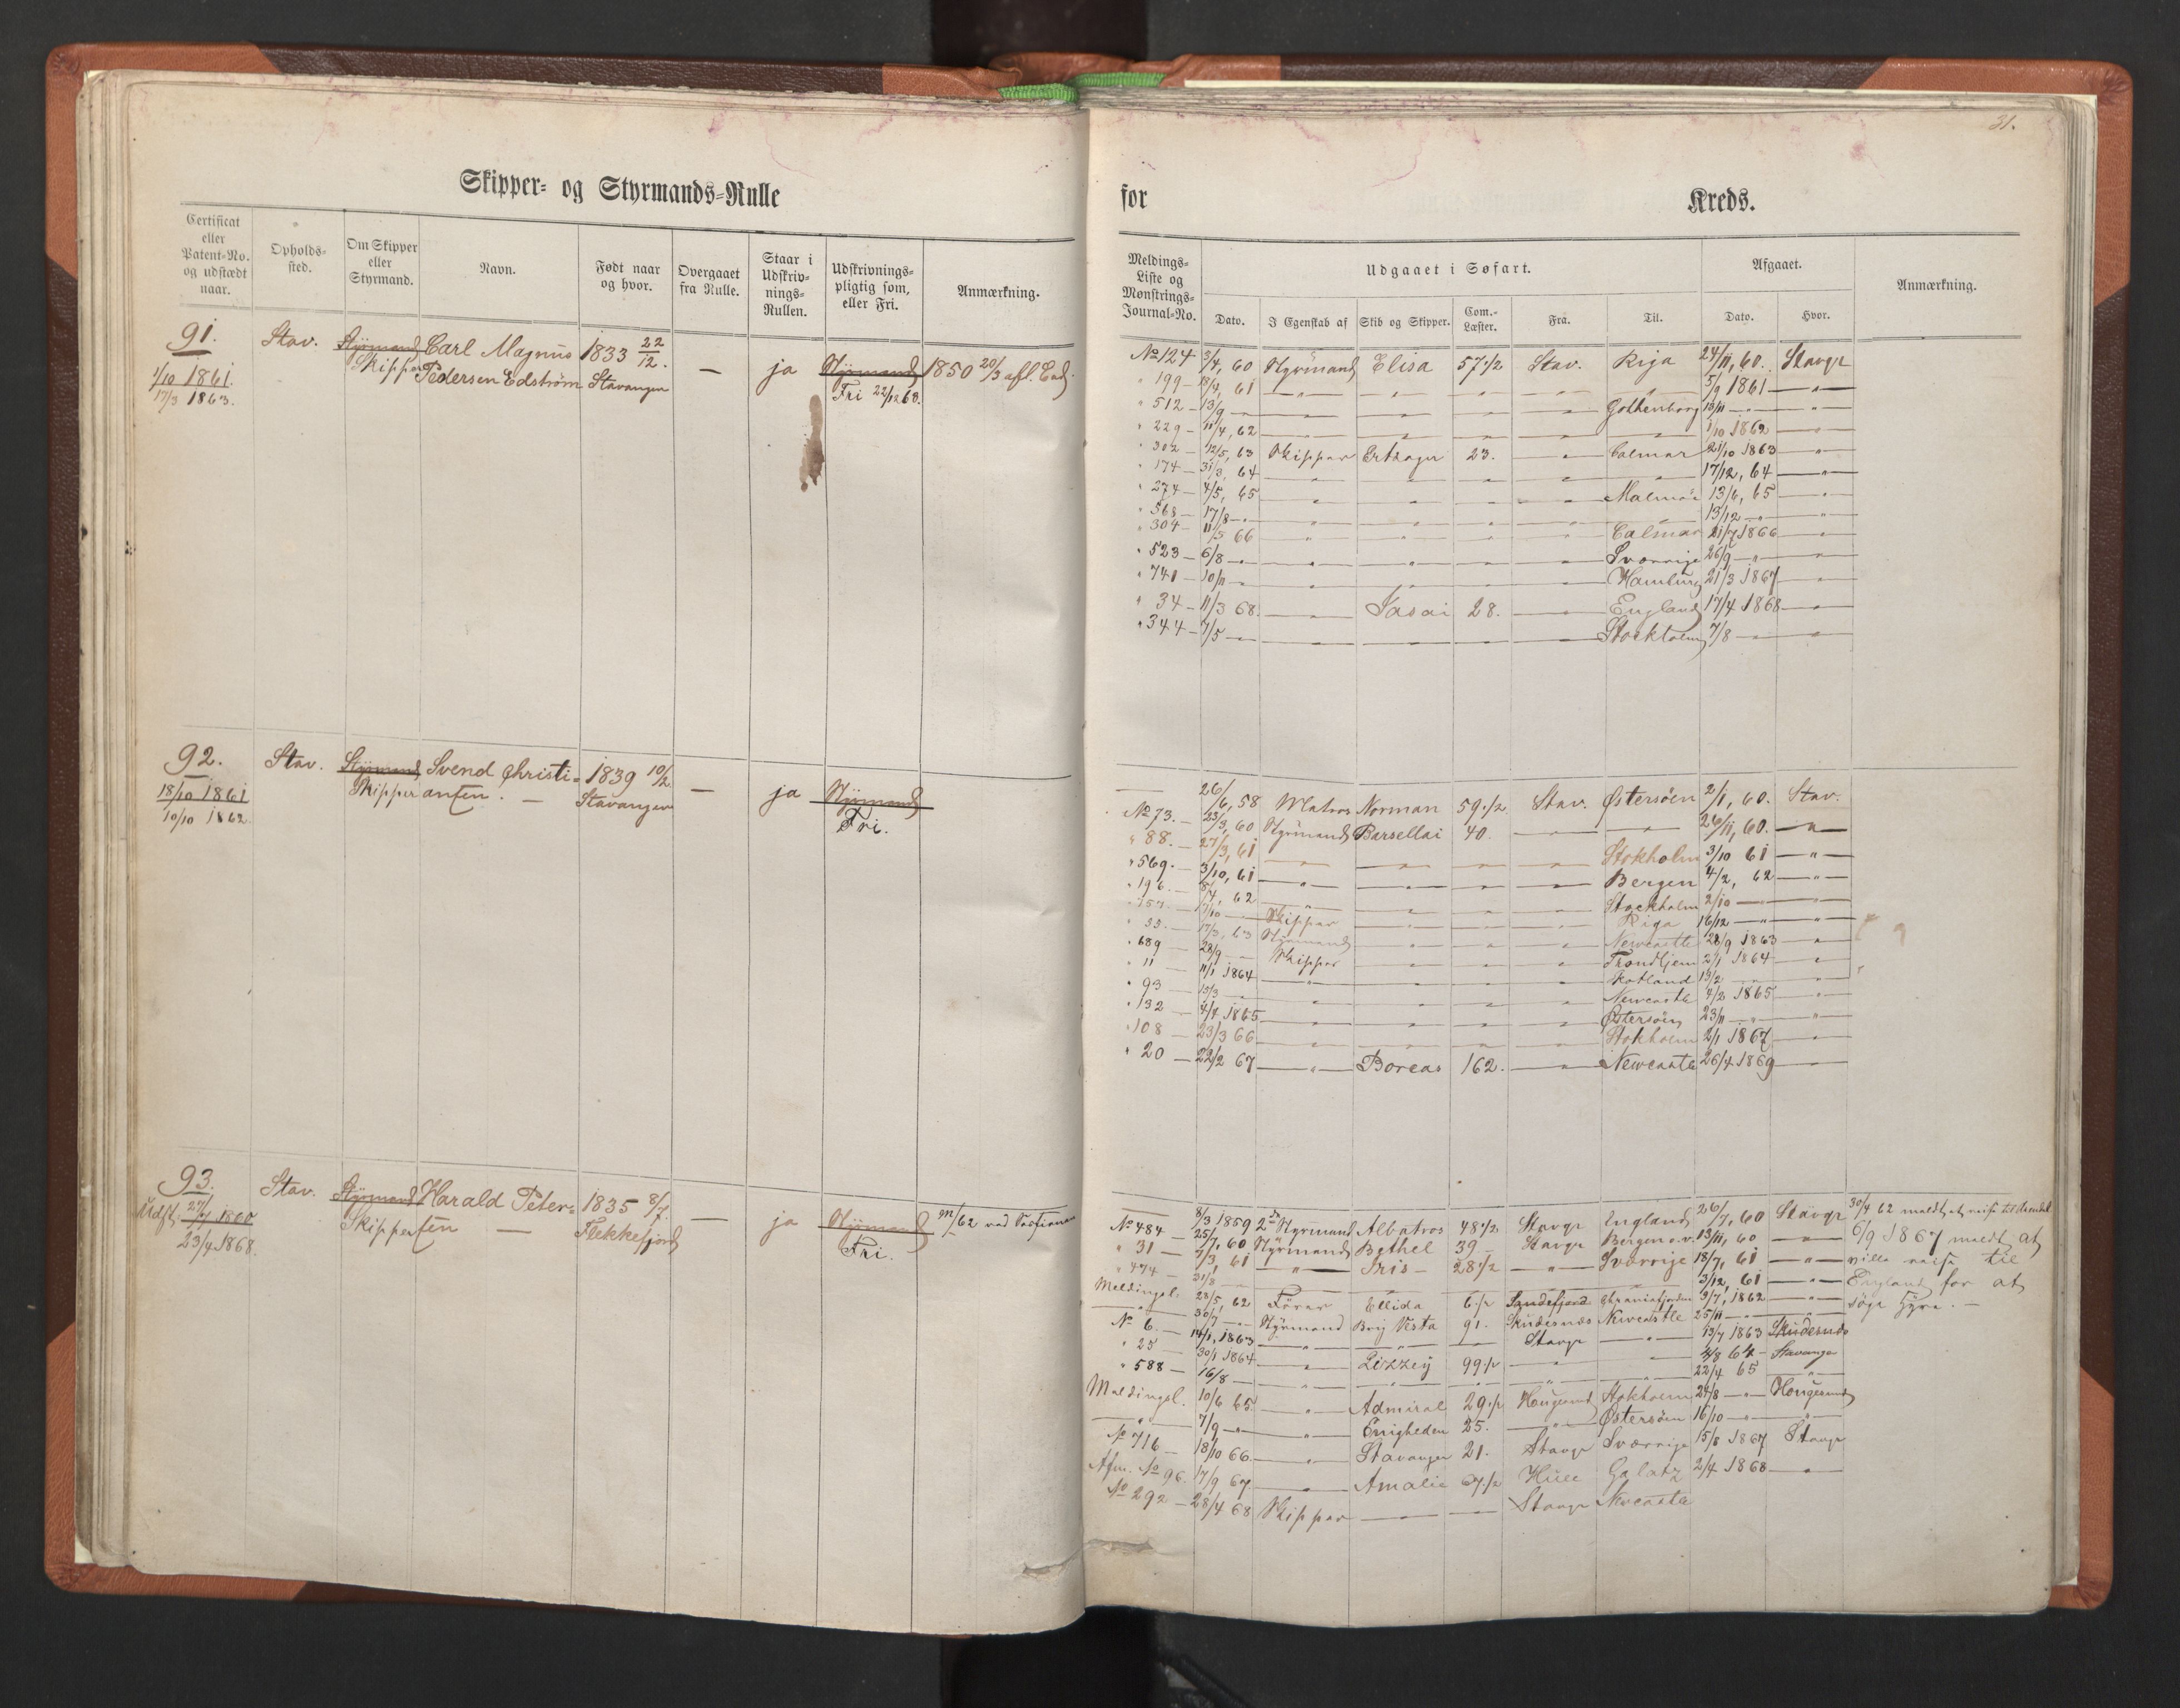 31.
Skipper- og Styrmands-Rulle
for Kreds.
Certificat eller Patent-No. og udstædt naar.
Opholds-sted.
Om Skipper eller Styrmand.
Navn.
Født naar og hvor.
Overgaaet fra Rulle.
Staar i Udskriv-nings-Rullen.
Udskrivnings-pligtig som, eller Fri.
Anmærkning.
Meldings-Liste og Mønstrings-Journal-No.
Udgaaet i Søfart.
Dato.
I Egenskab af
Skib og Skipper.
Com.-Læster.
Fra.
Til.
Afgaaet.
Dato.
Hvor.
Anmærkning.
91. Stav. Styrmand Carl Magnus 1833 22/12.
1/10 1861. Skipper Pedersen Edström Stavanger — ja Styrmand 1850 20/3 afl. Eed.
17/3 1863. Fri 22/12 68.
No 124 3/4, 60 Styrmand Elisa 57 1/2 Stav. Riga 24/11, 60. Stavgr
" 199 — 18/4, 61 — " — " — " — " — " 5/9 1861 — " —
" 512 — 13/9 — " — " — " — " — Gothenborg 13/11 — " — " —
" 229 — 11/4, 62 — " — " — " — " — " 1/10 1862 — " —
" 302 — 12/5, 63 Skipper Ertsager 23. — " — Calmar 21/10 1863 — " —
" 174 — 31/3, 64 — " — " — " — " — " 17/12, 64 — " —
" 274 — 4/5, 65 — " — " — " — " — Malmöe 13/6, 65 — " —
" 568 — 17/8 — " — " — " — " — " — " 13/12 — " — " —
" 304 — 11/5 66 — " — " — " — " — Calmar 21/7 1866 — " —
" 523 — 6/8 — " — " — " — " — " — Sverrige 26/9 — " — " —
" 741 — 10/11 — " — " — " — " — " — Hamburg 21/3 1867 — " —
" 34 — 11/3 68. — " — Jasai 28. — " — England 17/4 1868 — " —
" 344 — 7/5 — " — " — " — " — " — Stockholm 7/8 — " — " —
92. Stav. Styrmand Svend Christi- 1839 10/2.
18/10 1861 Skipper ansen. — Stavanger — ja Styrmand
10/10 1862. Fri.
— 26/6, 58 Matros Norman 59 1/2 Stav. Østersöen 2/1, 60. Stav.
No 73. — 23/3, 60 Styrmand Barsellai 40. — " — " 26/11, 60. — " —
" 88. — 27/3, 61 — " — " — " — " — Stokholm 3/10 61 — " —
" 569. — 3/10, 61 — " — " — " — " — Bergen 4/2, 62 — " —
" 196. — 8/4, 62 — " — " — " — " — Stockholm 2/10 — " — " —
7/10 — Skipper — " — " — " — Riga 16/12 — " — " —
" 55. — 17/3, 63 Styrmand — " — " — " — Newcastle 28/9 1863 — " —
" 689 — 28/9 — Skipper — " — " — " — Trondhjem 2/1 1864 — " —
" 11 — 11/1 1864 — " — " — " — " — Skotland 13/2 — " — " —
" 93 — 15/3 — " — " — " — " — Newcastle 4/2 1865 — " —
" 132 — 4/4 1865 — " — " — " — " — Østersöen 23/11 — " — " —
" 108 — 23/3 66 — " — " — " — " — Stokholm 2/1 1867 — " —
" 20 — 22/2 67 — " — Boreas 162. — " — Newcastle 26/4 1869 — " —
93. Stav. Styrmand Harald Peter- 1835 8/7.
Udst. 27/7 1860 Skipper sen — Flekkefjord — ja Styrmand
23/4 1868. Fri.
— 8/3 1859 2den Styrmand Albatros 48 1/2 Stavgr England 26/7, 60 Stavgr 30/4 62
No 484 — 25/7, 60 Styrmand Bethel 39 — Stavgr Bergen o.v. 13/11, 60 — " — 6/9 1867 meldt at
" 31 — 7/3, 61 — " — Iris — 28 1/2 — " — Sverrige 18/7, 61 — " — ville reise til
" 474 — 21/8 — " — " — " — " — " 3/12, 61 — " — England for at
Meldingsl. 28/5 62 Förer Ellida 6 1/2 Sandefjord Christianiafjorden 3/7, 1862 — " — söge Hyre. —
— " — 30/7 — " — Styrmand Brig Vesta 91. Skudesnæs Newcastle 25/11 — " — " —
No 6. — 14/1, 1863 — " — " — " — Stavgr — " — 13/7 1863 Skudesnæs
" 25 — 30/1 1864 — " — Lizzey 99 1/2 — " — " — 4/8 64 — Stavanger
" 588 — 16/8 — " — " — " — " — " — " 22/4 65 — " —
Meldingsl. 10/6 65. — " — Admiral 29 1/2 Haugesund Stokholm 24/8 — " — Haugesund
— " — 7/9 — " — " — Enigheden 25. — " — Østersöen 16/10 — " — " —
No 716 — 18/10 66. — " — Stavanger 21. Stavgr Sverrige 15/8 1867 Stavgr
Afm. No 96. 17/9 67 — " — Amalie 67 1/2 Hull Galatz 2/4 1868 — " —
No 292 — 28/4 68 Skipper — " — " — Stavgr Newcastle